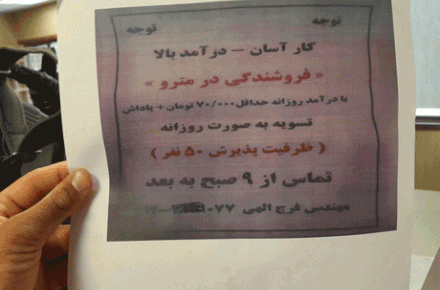 توجه توجه
کار آسان – درآمد بالا
« فروشندگی در مترو »
با درآمد روزانه حداقل ۷۰/۰۰۰ تومان + پاداش
تسویه به صورت روزانه
( ظرفیت پذیرش ۵۰ نفر )
تماس از ۹ صبح به بعد
مهندس فرج الهی